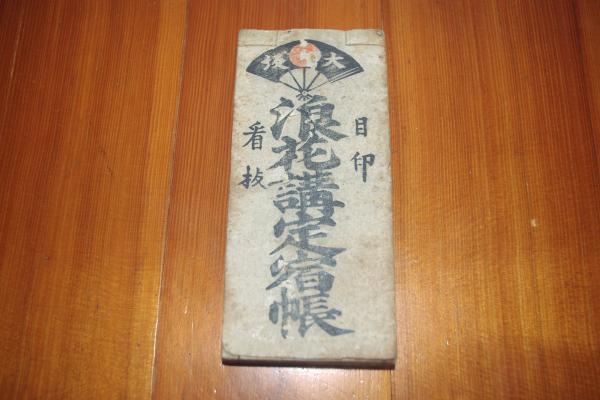 大
目印
浪花講定宿帳
看板